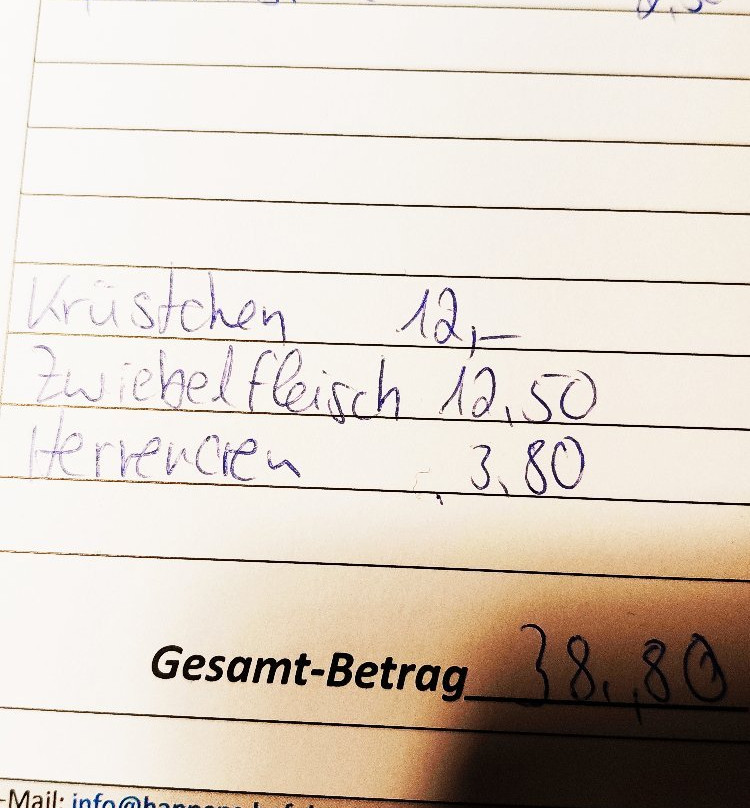 Krüstchen 12,-
Zwiebelfleisch 12,50
Herrencren 3,80
Gesamt-Betrag 38,80
-Mail: